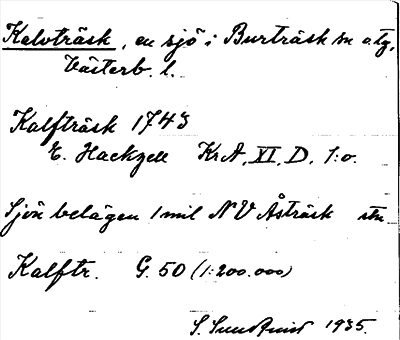 Kalvträsk, en sjö i Burträsk sn o. tg,
Västerb. l.
Kalfträsk 1743
E. Hackzell KrA, VI, D, 1:o.
Sjön belägen 1 mil NV Åsträsk stn
Kalftr. G. 50 (1:200.000)
S. Sundqvist 1935.